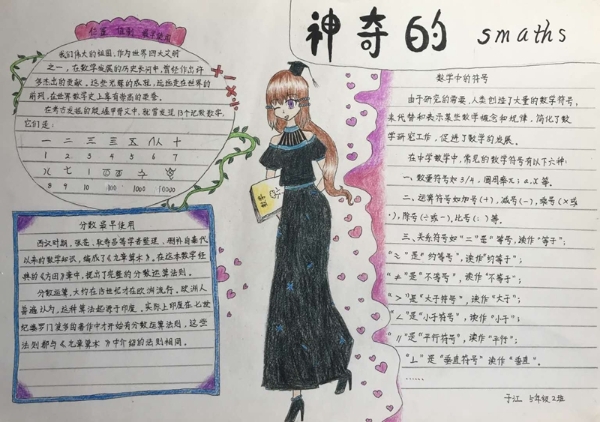 神奇的 smaths
位置 值制 最早使用
我们伟大的祖国,作为世界四大文明
之一,在数学发展的历史长河中,曾经作出许
多杰出的贡献。这些光辉的成就,远远走在世界的
前列,在世界数学史上享有崇高的荣誉。
在考古发现的殷墟甲骨文中,就曾发现13个记数数字,
它们是:
一 二 三 三 五 八人 十
1 2 3 4 5 6 7
8 9 10 100 1000 10000
分数最早使用
西汉时期,张苍、耿寿昌等学者整理、删补自秦代
以来的数学知识,编成了《九章算术》。在这本数学经
典的《方田》章中,提出了完整的分数运算法则。
分数运算,大约在15世纪才在欧洲流行。欧洲人
普遍认为,这种算法起源于印度。实际上印度在七世
纪婆罗门笈多的著作中才开始有分数运算法则,这些
法则都与《九章算术》中介绍的法则相同。
数学中的符号
由于研究的需要,人类创造了大量的数学符号,
来代替和表示某些数学概念和规律,简化了数
学研究工作,促进了数学的发展。
在中学数学中,常见的数学符号有以下六种:
一、数量符号如3/4,圆周率π;a,x等。
二、运算符号如加号(+),减号(-),乘号(×或
·),除号(÷或-),比号(:)等。
三、关系符号如“=”是“等号”,读作“等于”;
“≈”是“约等号”,读作“约等于”;
“≠”是“不等号”,读作“不等于”;
“>”是“大于符号”,读作“大于”;
“<”是“小于符号”,读作“小于”;
“∥”是“平行符号”,读作“平行”;
“⊥”是“垂直符号”读作“垂直”。
……
于江 5年级2班